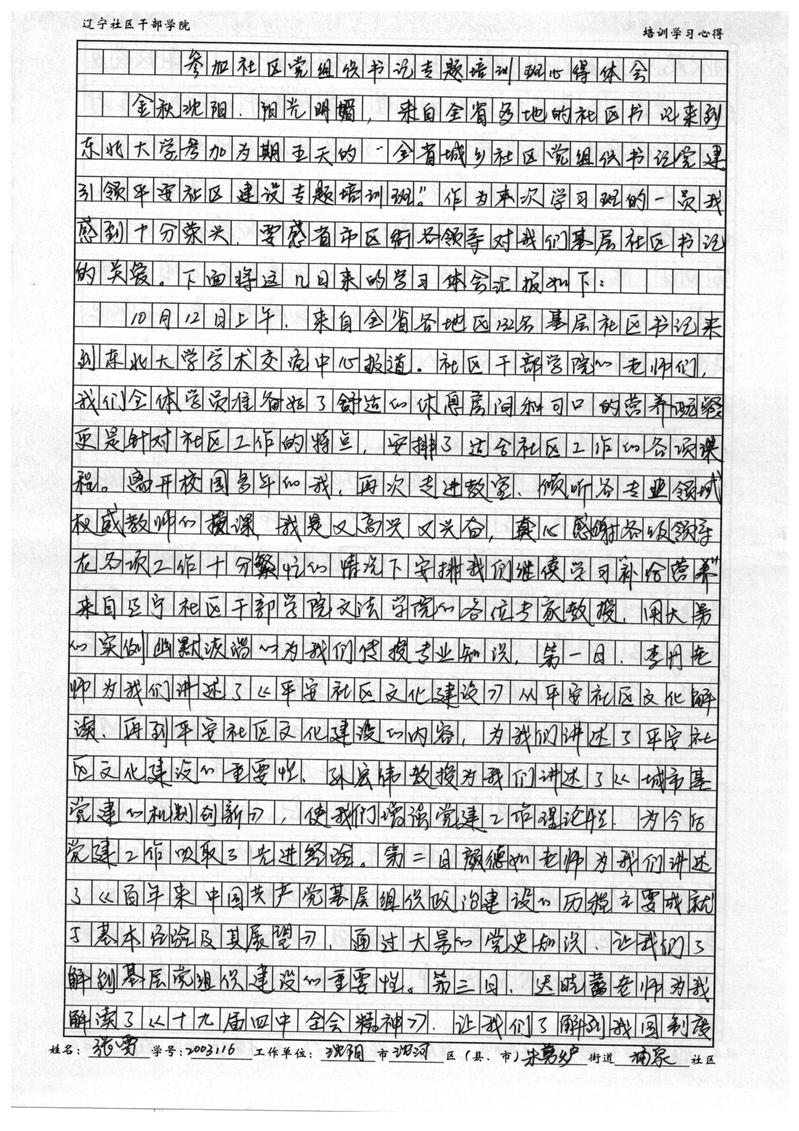 辽宁社区干部学院
培训学习心得
参加社区党组织书记专题培训班心得体会
金秋沈阳，阳光明媚，来自全省各地的社区书记来到
东北大学参加为期五天的“全省城乡社区党组织书记党建
引领平安社区建设专题培训班”。作为本次学习班的一员我
感到十分荣兴，要感省市区街各领导对我们基层社区书记
的关爱。下面将这几日来的学习体会汇报如下：
10月12日上午，来自全省各地区132名基层社区书记来
到东北大学学术交流中心报道。社区干部学院的老师们，
我们全体学员准备好了舒适的休息房间和可口的营养配餐
更是针对社区工作的特点，安排了适合社区工作的各项课
程。离开校园多年的我，再次走进教室，倾听各专业领域
权威教师的授课，我是又高兴又兴奋，真心感谢各级领导
在各项工作十分繁忙的情况下安排我们继续学习“补给营养”
来自辽宁社区干部学院文法学院的各位专家教授，用大量
的实例幽默诙谐的为我们传授专业知识，第一日，李丹老
师为我们讲述了《平安社区文化建设》从平安社区文化解
读，再到平安社区文化建设的内容，为我们讲述了平安社
区文化建设的重要性，孙宏伟教授为我们讲述了《城市基
党建的机制创新》，使我们增强党建工作理论性，为今后
党建工作吸取了先进经验。第二日颜德如老师为我们讲述
了《百年来中国共产党基层组织政治建设的历程主要成就
了基本经验及其展望》，通过大量的党史知识，让我们了
解到基层党组织建设的重要性。第三日，迟晓蕾老师为我
解读了《十九届四中全会精神》，让我们了解到我国制度
姓名： 学号：2003116 工作单位：沈阳市沈河区（县、市） 街道 社区